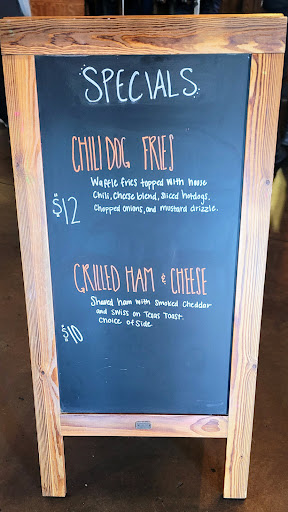 SPECIALS
CHILI DOG FRIES
Waffle fries topped with house
Chili, Cheese blend, Sliced hotdogs,
Chopped onions, and mustard drizzle.
$12
GRILLED HAM & CHEESE
Shaved ham with Smoked Cheddar
and SWISS on Texas Toast.
Choice of Side
$10